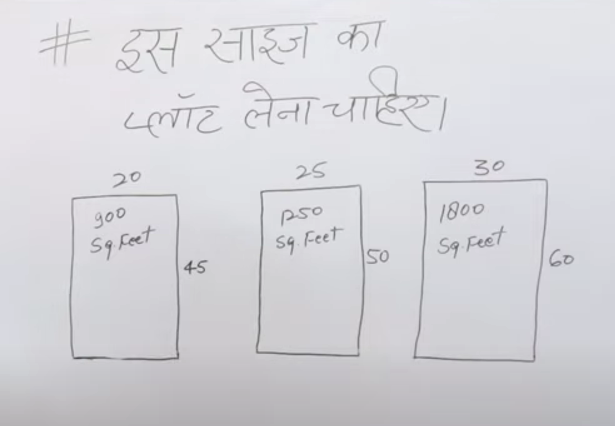 # इस साइज का
प्लॉट लेना चाहिए।
20
900
Sq.Feet
45
25
1250
Sq.Feet
50
30
1800
Sq.Feet
60